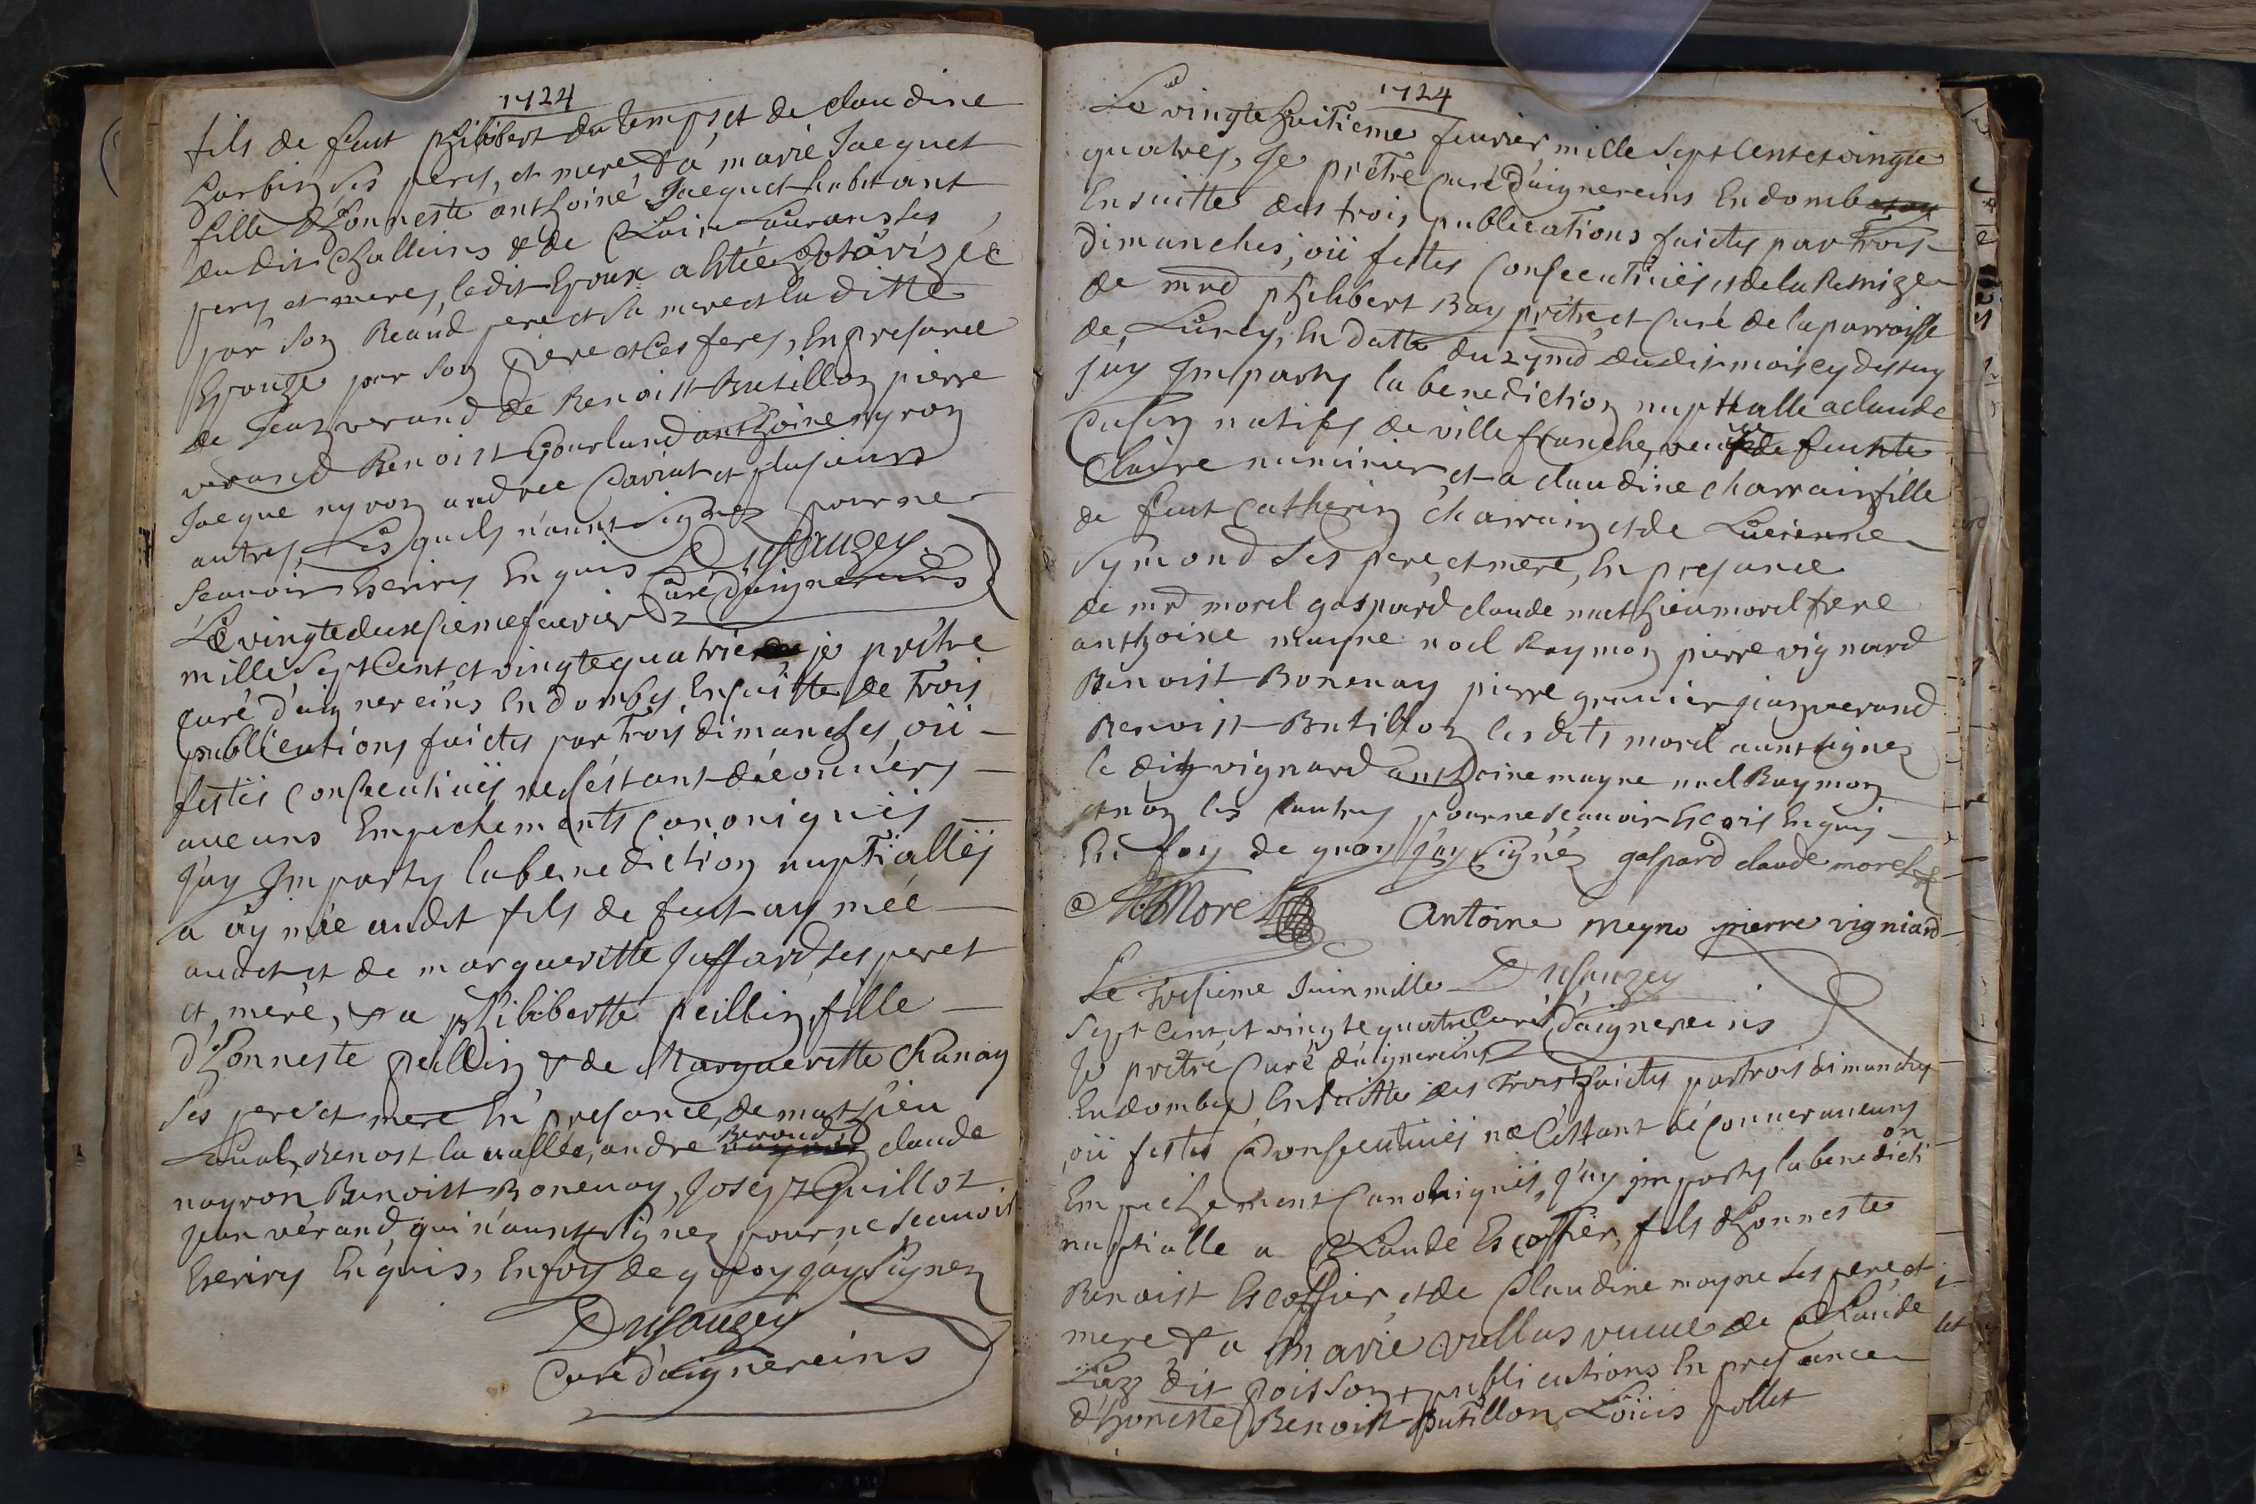 1724
fils de feut philibert du temps, et de claudine
Garbin ses peres, et mere, & a marie Jacquet
fille d'honneste anthoine Jacquet habitant
dudit Challeins & de Claire Laurans ses
peres et meres, ledit Epoux a hétée hotôrizéé
par son Beaud pere et sa mere et la ditte
Epouze par son père et Ces feres, En presance
de Jean verand de Benoist Butillon pierre
verand Benoist Gourland anthoine nyron
Jacque nyron andree Cariat et plusieurs
autres, Lesquels n'aunt Signez pour ne
Scauoir Escrirs Enquis Dusauzey
Curé d'aignereins
Le vingtedeuxsiemefeuvrier
mille Sept Cent, et vingtequatrié je prêtre
curé d'aignereins En dombes, Ensuitte de Trois
publications faictes par Trois dimanches, oü
festes Conseentiuës ne s'estant décounérs
aucuns Empechements Canoniqués
J'ay Imparty la benediction nuptiallés
a aymée audet fils de feut aymée
audet et de margueritte Juffard ses peret
et, mere, & a philibertte peillin, fille
d'honneste peillin & de Margueritte Chanay
ses pere et mere En presance, de mathieu
Benost la vallée, andre Beroud claude
nayron Benoist Bonenay, Josept Guillot
Jean vérand, qui n'aunt Signez pour ne Scauoir
Escrirs Enquis, Enfoy de quoy j'ay Signez
Dusauzey
Curé d'aignereins
1724
Le vingte huitieme feuvrier, mille Sept Cent et vingte
quatres, Je prêtre Curé d'aignereins En domb
Ensuitte des trois publications faictes par Trois
dimanches, oü festes Conseentiuës, et de la Remize
de mrd philibert Bay prêtre, et Curé de la parroisse
de, Lurcy, En datte du 27md dudit mois cy dessus
J'ay Imparty la benediction nupttialle a claude
Cusin natifs de ville franche, veuf de feuhte
Claire numinier, et a claudine charrain fille
de feut Catherin charrain et de Lucienne
Symond Ses pere, et mere, En presance
de mrd morel gaspard claude mathieu morel frere
anthoine mayne noel Raymon pierre vignard
Benoist Bonenay pierre granier jean verand
Benoist Butillon les dits morel aunt signez
le dit vignard anthoine mayne noel Raymon
et non les lautres pour ne Scauoir Escris Enquis
En foy de quoy j'ay Signéz gaspard claude morel
Morel Antoine meyne pierre vigniard
Le Tresieme Juin mille Dusauzey
Sept Cent et vingte quatre Curé d'aignereins
Je prêtre Curé d'aignereins
En dombes, Ensuitte des Trois faictes par trois dimanches
oü festes Conseentiués ne s'estant découner aucuns
Empechement Canoniqués, j'ay jmparty la benediction
nuptialle a Claude Escoffier, fils d'honneste
Benoist Escoffier, et de Claudine mayne ses pere, et
mere & a Marie vallas veuue de Claude
dit poisson publications En presance
d'honeste Benoist Butillon, Loüis follet